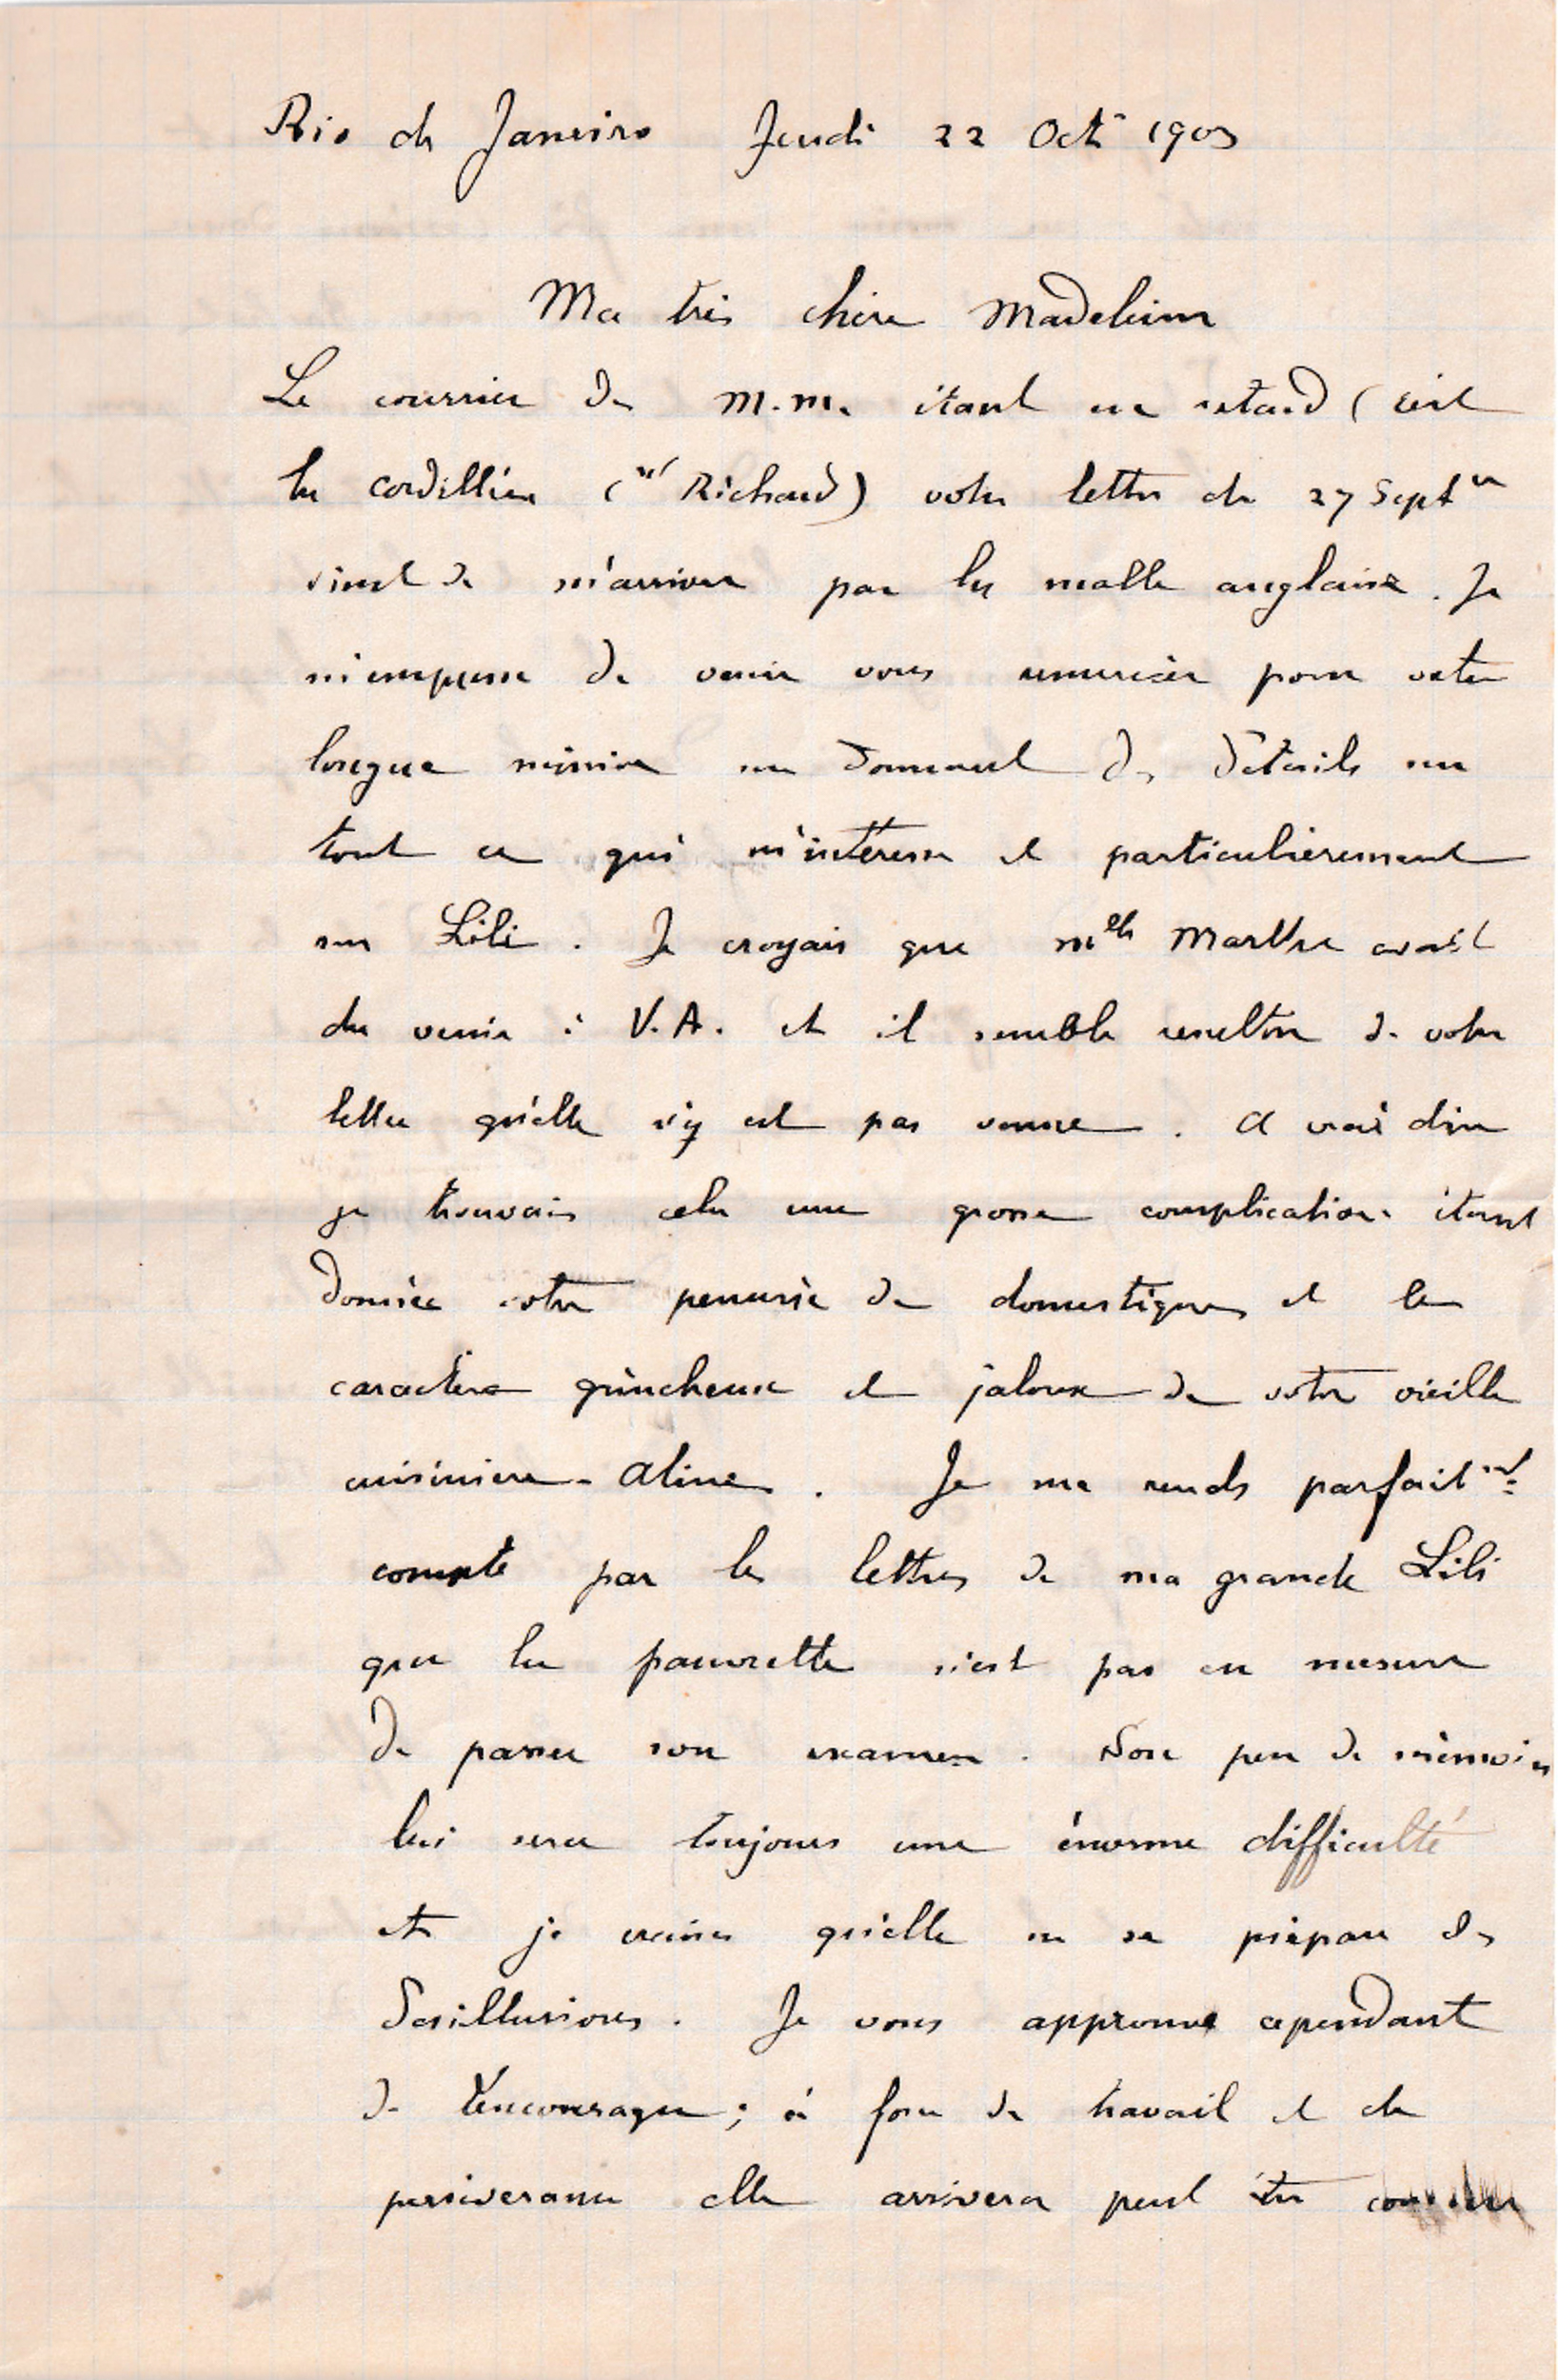 Rio de Janeiro Jeudi 22 Oct 1903
Ma très chère Madeleine
Le courrier de M.M. étant en retard (c'est
la cordillière (Richard) votre lettre de 27 Sept
vient de m'arriver par la malle anglaise. Je
m'empresse de venir vous remercier pour votre
longue missive me donnant des détails sur
tout ce qui m'intéresse et particulièrement
sur Lili. Je croyais que Melle Marthe avait
du venir à V.A. et il semble resulter de votre
lettre qu'elle n'y est pas venue. A vrai dire
je trouvais cela une grosse complication étant
donnée votre penurie de domestiques et le
caractère grincheux et jaloux de votre vieille
cuisiniere - Aline. Je me rends parfaitnt
compte par les lettres de ma grande Lili
que la pauvrette n'est pas en mesure
de passer son examen. Son peu de mémoire
lui sera toujours une énorme difficulté
et je crains qu'elle ne se prépare des
desillusions. Je vous approuve cependant
de l'encourager ; à force de travail et de
perséverance elle arrivera peut être